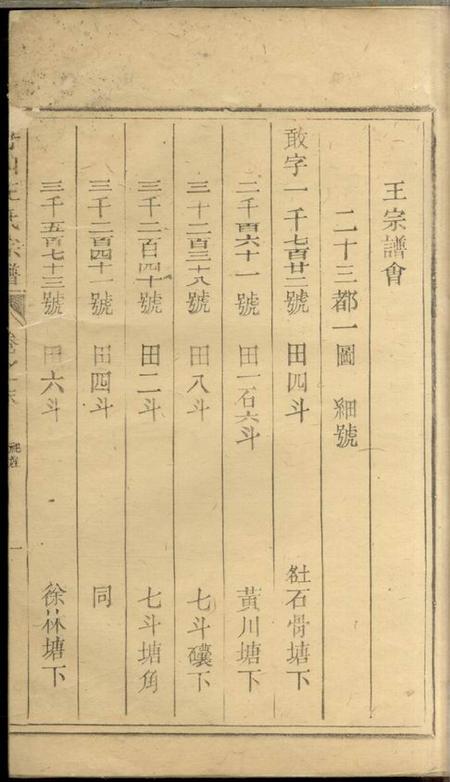 王宗譜會
二十三都一圖 細號
敢字一千七百廿二號 田四斗 社石骨塘下
二千百六十一號 田一石六斗 黃川塘下
三十二百三十八號 田八斗 七斗礦下
三千二百四十號 田二斗 七斗塘角
三千二百四十一號 田四斗 同
三千五百七十三號 田六斗 徐林塘下
王氏宗譜 卷之末 一